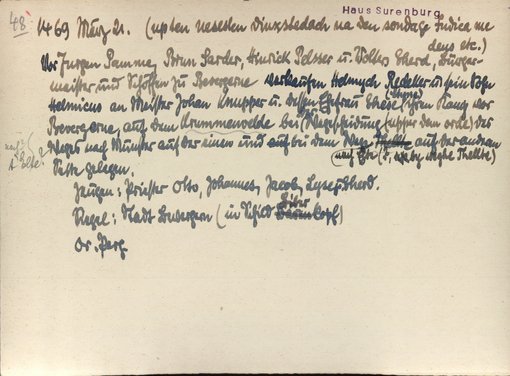 Haus Surenburg
48
1469 März 21. (up den nesesten dinxstedach na den sondage Judica me
deus etc.)
Vor Jurgen Damme, Brun Harder, Hinrick Pelsser u. Volkers Eberd, Bürger-
meister und Schöffen zu Bevergerne verkaufen Helmych Redeker u. sein Sohn
Helmicus an Meister Johan Knupper u. dessen Ehefrau Ihren Kamp vor
Bevergerne, auf dem Krummenvelde bei Wegscheidung (upper den orde) der
Weges nach Münster auf der einen und auf bei dem Wege auf der andren
Seite gelegen.
Zeugen: Priester Otto, Johannes, Jacob, Eberd.
Siegel: Stadt Bevergern (im Schild Biber kopf)
Or. Perg.